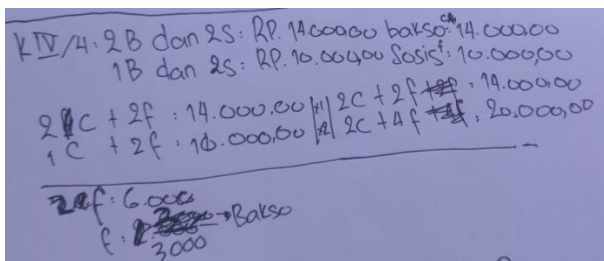 KIV/4: 2B dan 2S: RP. 14.000,00 bakso: C 14.000,00
1B dan 2S: RP. 10.000,00 Sosis f: 10.000,00
2C + 2f : 14.000,00 |x1| 2C + 2f : 14.000,00
1C + 2f : 10.000,00 |x2| 2C + 4f : 20.000,00
2f : 6.000
f : 3000 → Bakso